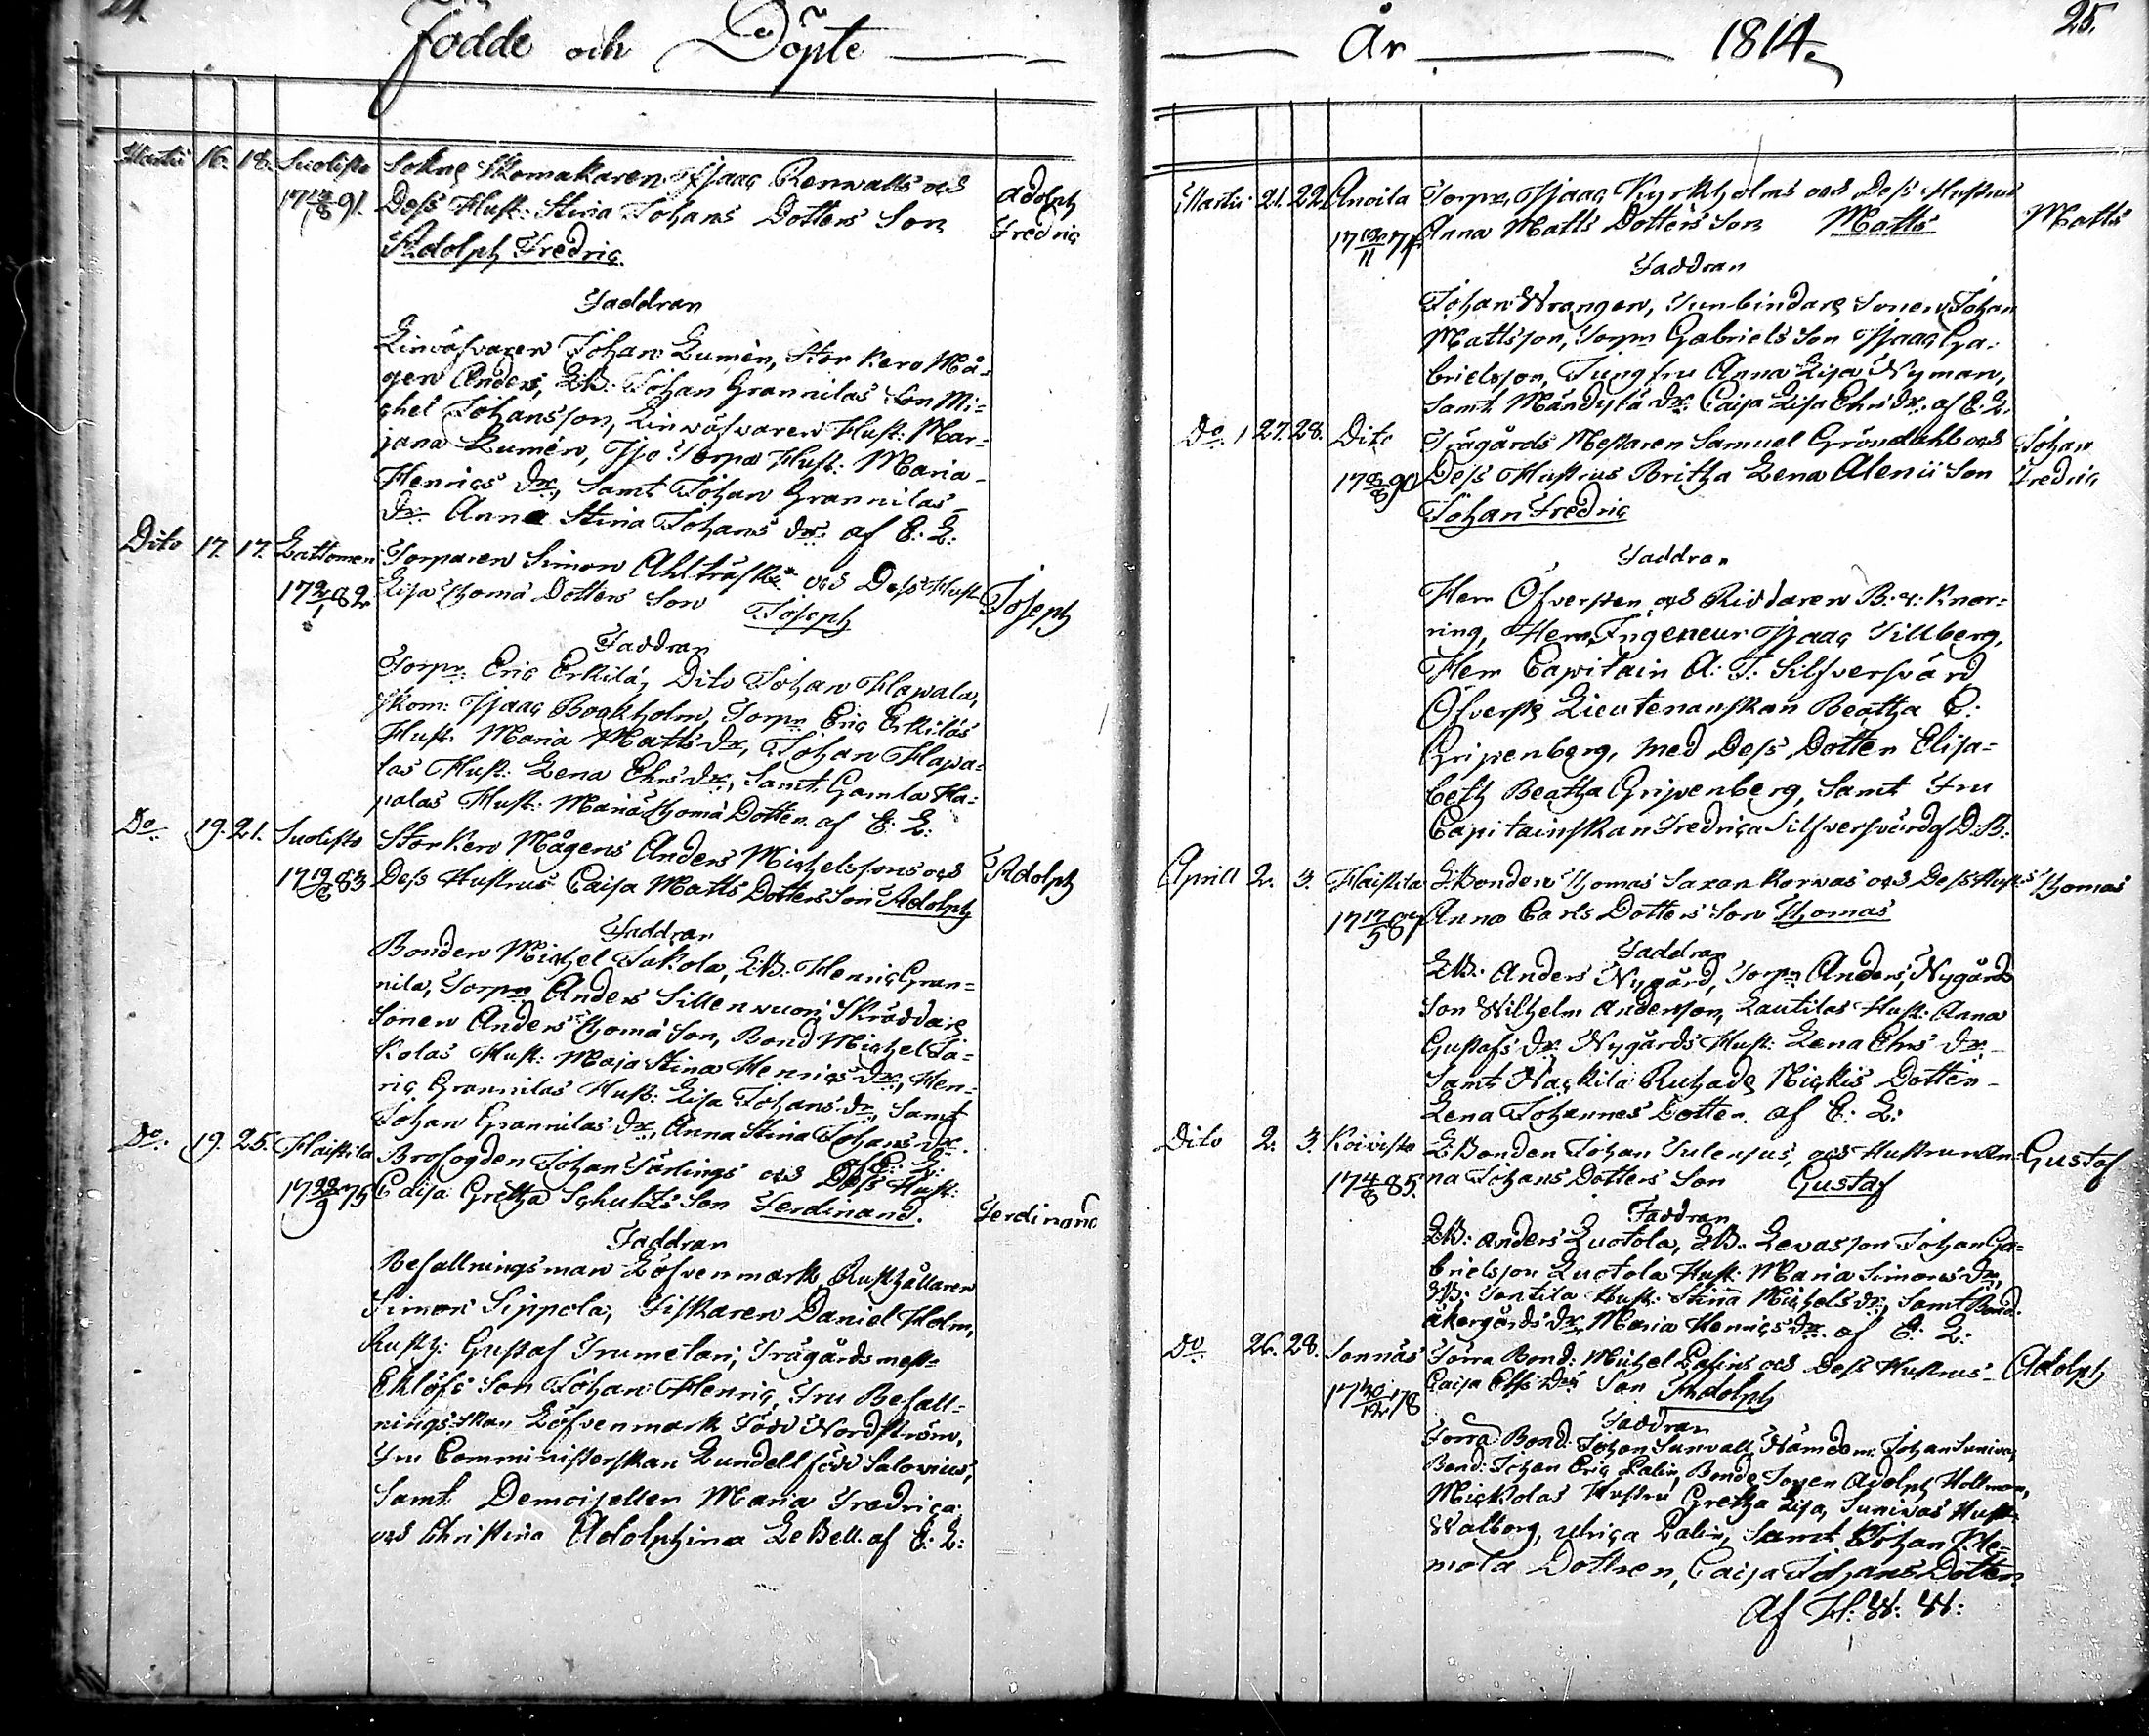 24.
Födde och Döpte
Martii 16. 18. Suolisto Sokne Skomakaren Isaac Renwalls och
Dess Hust: Stina Johans Dotters Son
Adolph Fredric
Adolph Fredric.
Faddran
Linväfvaren Johan Lumèn, Storkero Må-
gen Anders, LB. Johan Grannilas Son Mi-
chel Johansson, Linväfvaren Hust: Mar-
jana Lumèn, Torpar Hust: Maria
Henrics Dr, Samt Johan Grannilas
Dr. Anna Stina Johans Dr. af E. L:
Dito 17. 17. Torparen Simon Ahlträsk och Dess Hust
17 82 Lisa Thomæ Dotters Son Joseph Joseph
Faddran
Torpr: Eric Erkilä, Dito Johan Hapala,
Skom: Isaac Bockholm, Torpr Eric Erkiläs
Hust: Maria Matts Dr, Johan Hapa-
las Hust: Lena Ehrs Dr, Samt Gamla Ha-
palas Hust: Maria Thomæ Dotter. af E. L:
Do. 19. 21. Suolisto Storkero Mågens Anders Michelssons och
17 83 Dess Hustrus Caisa Matts Dotters Son Adolph Adolph
Faddran
Bonden Michel Jakola, LB. Henric Gran-
nila, Torpr Anders Sillenvuori, Skräddare
Sonen Anders Thomæ Son, Bond Michel Ja-
kolas Hust: Maja Stina Henrics Dr, Hen-
ric Grannilas Hust: Lisa Johans Dr, Samt
Johan Grannilas Dr, Anna Stina Johans Dr.
af E. L:
Do. 19. 25. Haistila Brofogden Johan Särlings och Dess Hust:
17 22/9 75 Caisa Gretha Schultz Son Ferdinand. Ferdinand
Faddran
Befallningsman Löfvenmark, Rusthållaren
Simon Sippola, Fiskaren Daniel Holm,
Rusth: Gustaf Trumetari, Trägårdsmest-
Eklöfs Son Johan Henric, Fru Befall-
ningsman Löfvenmark född Nordström,
Fru Comministerskan Lundell född Salovius,
Samt Demoiseller Maria Fredrica
och Christina Adolphina LeBell. af E. L:
År 1814. 25.
Martii 21. 22. Anoila Torpr, Isaac Kyrkholms och Dess Hustrus
17 Anna Matts Dotters Son Matts Matts
Faddran
Johan Wrangen, Tunbindare Sonen Johan
Mattsson, Torpr Gabriels Son Isaac Ga-
brielsson, Jungfru Anna Lisa Nyman,
Samt Mändylä Dr. Caisa Lisa Ehrs Dr. af E. L.
Do. 27. 28. Dito Trägårds Mestaren Samuel Gröndahls och Johan
17 90 Dess Hustrus Britha Lena Alenii Son Fredric
Johan Fredric
Faddran
Herr Öfversten och Riddaren B: v: Knor-
ring, Herr Ingeneur Isaac Tillberg,
Herr Capitain A: F. Silfversvärd
Öfverste Lieutenanskan Beatha C:
Gripenberg, med Dess Dotter Elisa-
beth Beatha Gripenberg, Samt Fru
Capitainskan Fredrica Silfversvärd af D. B:
Aprill 2. 3. Haistila LBonden Thomas Saxankorvas och Dess Hust:s Thomas
17 Anna Carls Dotters Son Thomas
Faddran
LB: Anders Nygård, Torpr Anders, Nygårds
Son Wilhelm Andersson, Lautilas Hust: Anna
Gustafs Dr. Nygårds Hust: Lena Ehrs Dr
Samt Näckilä Ruhade Nickis Dotter
Lena Johannes Dotter. af E: L:
Dito 2. 3. Koivisto LBonden Johan Julenjus, och Hustrun An- Gustaf
17 4/8 85. na Johans Dotters Son Gustaf
Faddran
LB: Anders Luotola, LB: Levasson Johan Ga-
brielsson Luotola Hust: Maria Simons Dr,
LB: Hust: Stina Michels Dr, Samt Bond.
åkergårds Dr Maria Henrics Dr. af E: L:
Do 26. 28. Sonnäs Förra Bond: Michel Palins och Dess Hustrus Adolph
17 30/12 78 Caisa Dr Son Adolph
Faddran
Förra Bond: Johan Sunvall, Nämdem: Johan Suniva,
Bond: Johan Eric Palin, Bonde Sonen Adolph Hollman,
Mickolas Hustru Gretha Lisa, Sunivas Hust:
Walborg, Ulrica Palin, Samt Johan Kle-
mola Dottren, Caisa Johans Dotter
Af H: W: W: